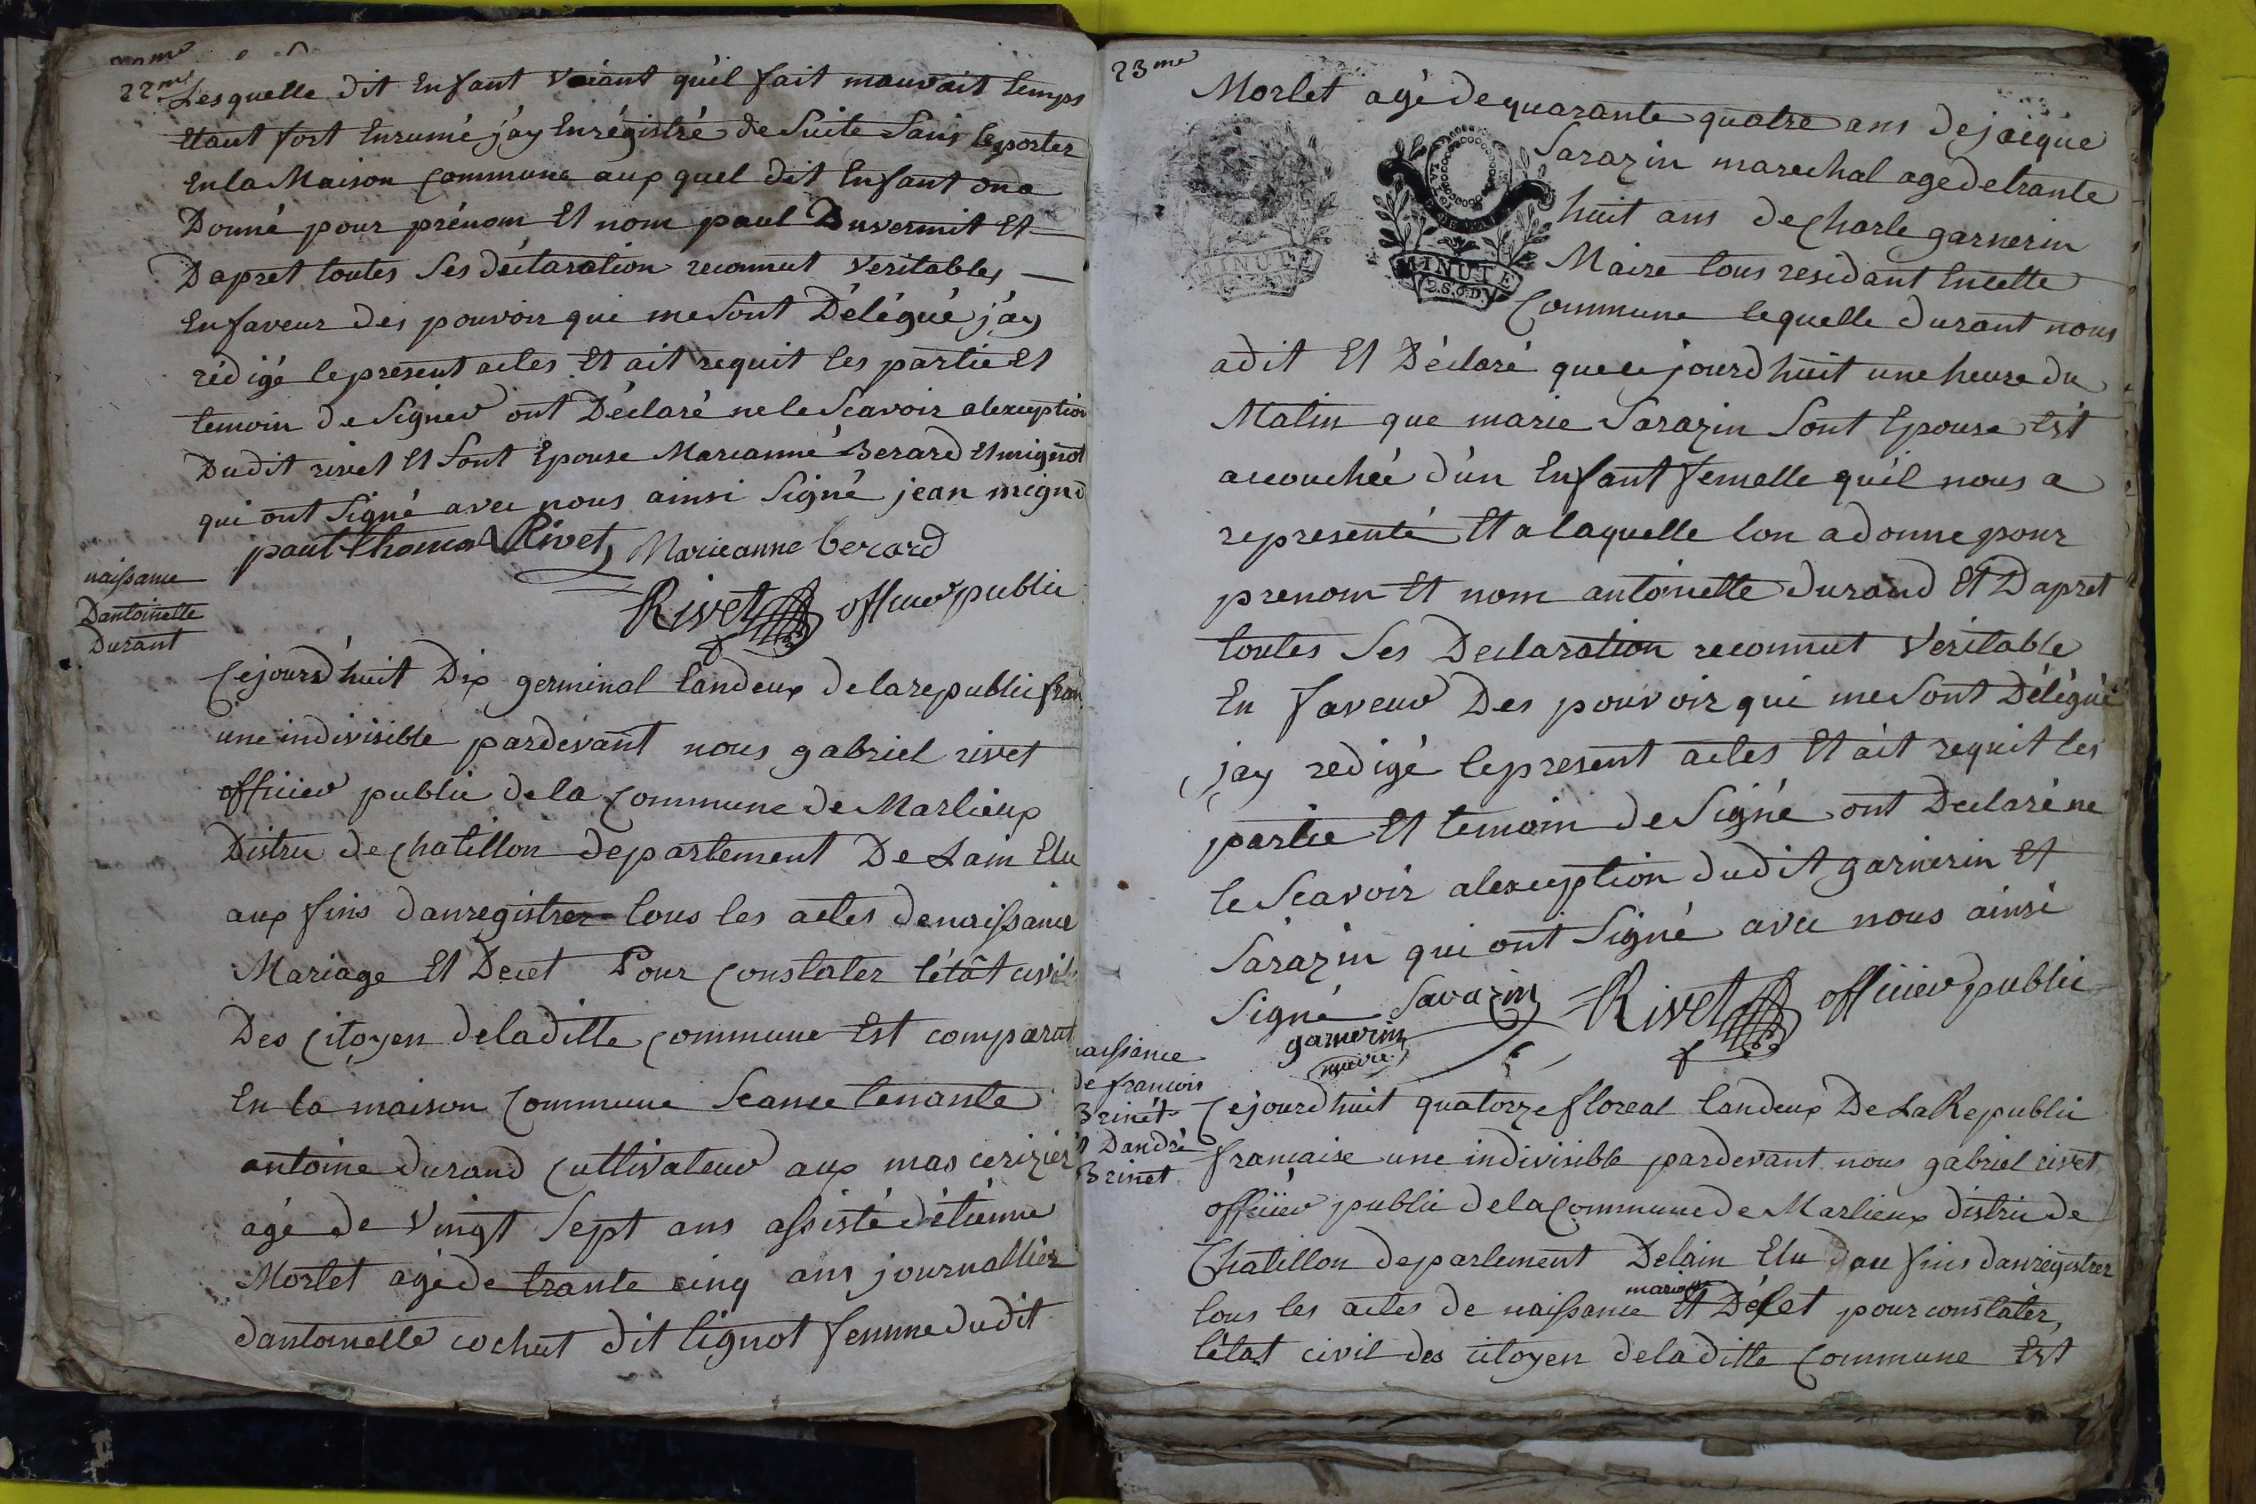 22me
Lesquelle dit Enfant voiant qu'il fait mauvait temps
Etant fort Enrumé j'ay Enrégistré de Suite Sans le porter
En la Maison Commune aux quel dit Enfant on a
Donné pour prénom Et nom paul Duvernit Et
D'apret toutes Ses déclaration reconnut veritables
En faveur des pouvoir qui me Sont Délégué j'ay
rédigé le present actes Et ait requit les partie Et
temoin de Signer ont Déclaré ne le Scavoir alexception
Dudit rivet Et Sont Epouse Marianne Berard Et mignot
qui ont Signé avec nous ainsi Signé jean mignot
paul thomas Rivet, Marieanne berard
Rivet officier public
naissance
Dantoinette
Durant
Cejourd'huit Dix germinal landeux de la republic fran
une indivisible pardevant nous gabriel rivet
officier public de la Commune de Marlieux
Distric de Chatillon departement De Lain Elu
aux fins danregistrer tous les actes de naissance
Mariage Et Decet Pour Constater létât civil
Des Citoyen de laditte Commune Est comparut
En la maison Commune Seance tenante
antoine durand Cultivateur aux mas cerizier
agé de vingt Sept ans assisté détiénne
Morlet agé de trante cinq ans journallier
dantoinette cochet dit lignot femme dudit
23me
Morlet agé de quarante quatre ans de jacque
Sarazin marechal age de trante
huit ans de Charle garnerin
Maire tous residant En cette
Commune lequelle durant nous
MINUTE
MINUTE
2.S.6.D
adit Et Déclaré que ce jourdhuit une heure du
Matin que marie Sarazin Sont Epouse Est
accouchée d'un Enfant femelle qu'il nous a
representé Et a laquelle lon a donne pour
prenom Et nom antoinette durand Et Dapret
toutes Ses Declaration reconnut veritable
En faveur Des pouvoir qui me Sont Délégué
jay redigé le present actes Et ait requit les
partie Et temoin de Signé ont Declaré ne
le Scavoir alexception dudit garnerin Et
Sarazin qui ont Signé avec nous ainsi
Signé Savazin Rivet officier public
garnerin
maire
naissance
de francois
Brinet
Et Dandré
Brinet
Cejourdhuit quatorze floreal landeux De La Republic
francaise une indivisible pardevant nous gabriel rivet
officier public de la Commune de Marlieux distric de
Chatillon departement Delain Elu aux fins danregistrer
mariage
tous les actes de naissance Et Décet pour constater
létat civil des citoyen de laditte Commune Est